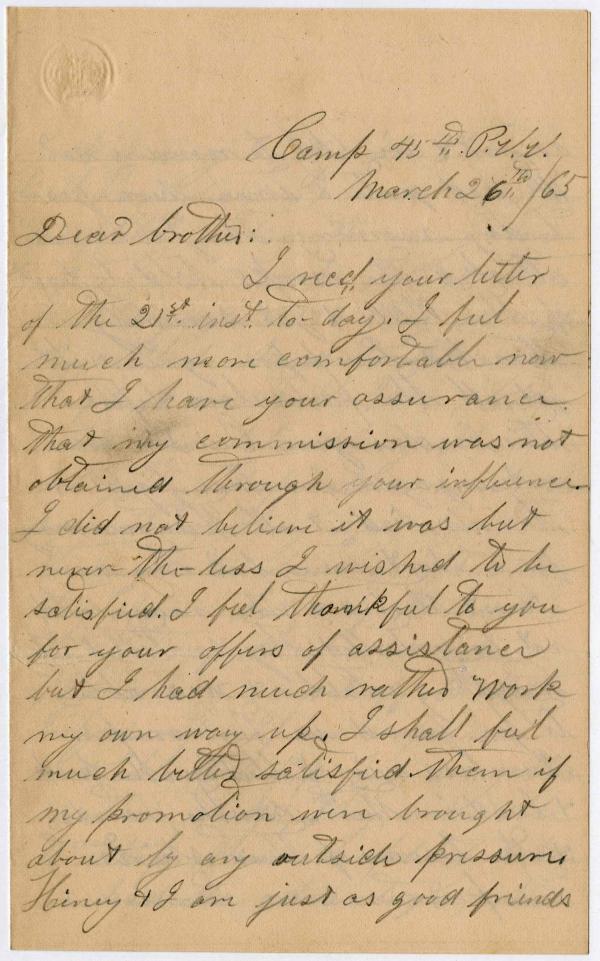 Camp 45th. P.V.V.
March 26th/65
Dear brother:
I recd your letter
of the 21st. inst. to-day. I feel
much more comfortable now
that I have your assurance
that my commission was not
obtained through your influence.
I did not believe it was but
never-the-less I wished to be
satisfied. I feel thankful to you
for your offers of assistance
but I had much rather work
my own way up. I shall feel
much better satisfied than if
my promotion were brought
about by any outside pressure.
& I are just as good friends